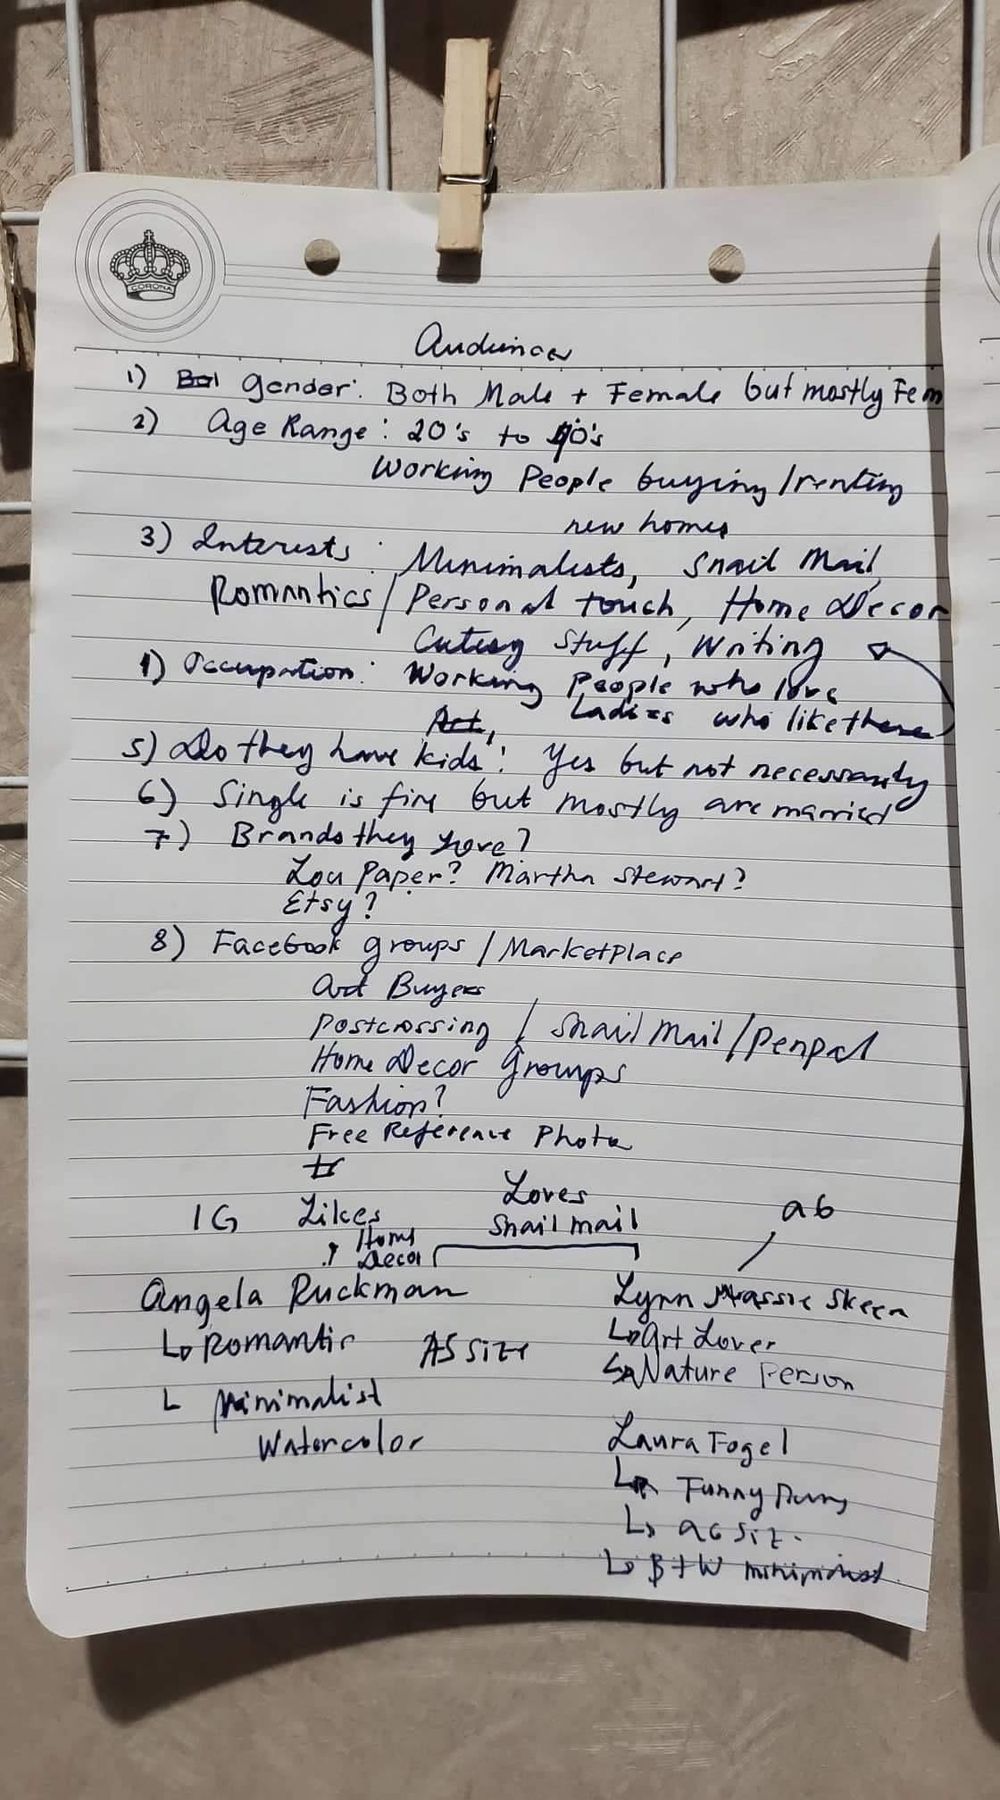 CORONA
Audience
1) Gender: Both Male + Female but mostly Fem
2) Age Range: 20's to 40's
Working People buying / renting
new homes
3) Interests: Minimalists, Snail Mail,
Romantics / Personal touch, Home Decor
Cutesy Stuff, Writing
4) Occupation: Working People who love
Art, Ladies who like these
5) Do they have kids: Yes but not necessarily
6) Single is fine but mostly are married
7) Brands they love?
Lou Paper? Martha Stewart?
Etsy?
8) Facebook groups / Marketplace
Art Buyers
Postcrossing / Snail Mail / Penpal
Home Decor Groups
Fashion?
Free Reference Photo
IG Likes Loves a6
Home Snail mail
Decor
Angela Ruckman Lynn Massie Skeen
Romantic A5 size Art Lover
Nature Person
Minimalist
Watercolor Laura Fogel
Funny
a6 siz.
B+W minimalist